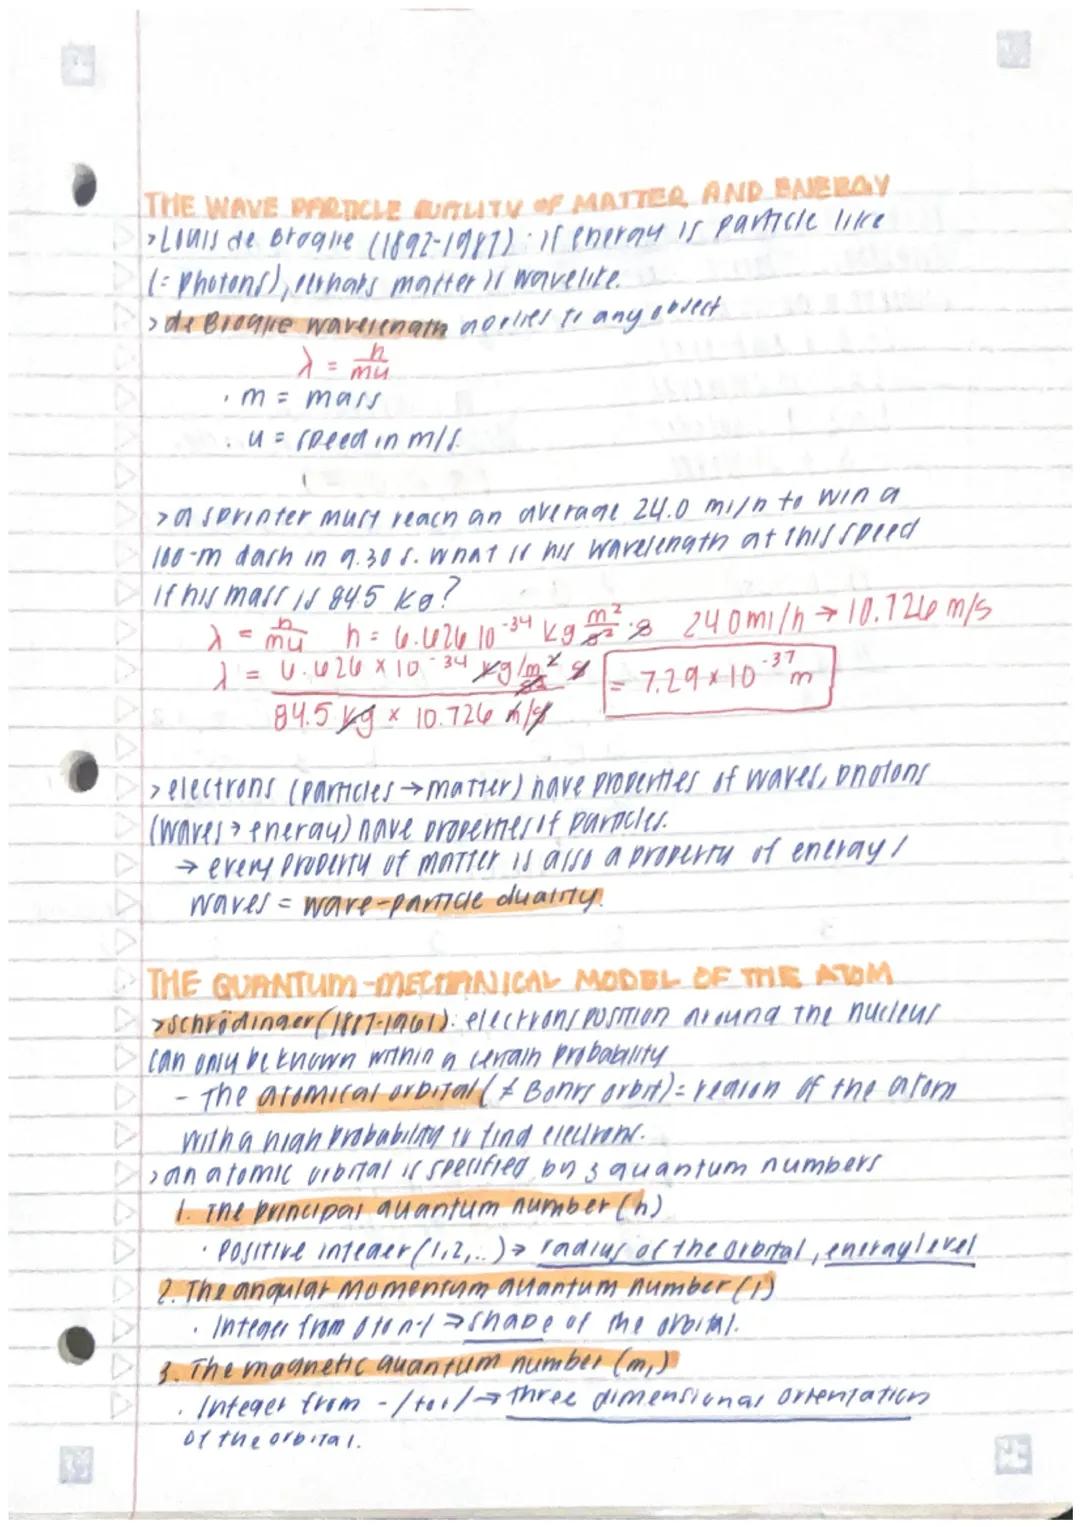 THE WAVE PARTICLE DUALITY OF MATTER AND ENERGY
> Louis de Broglie (1892-1987): if energy is particle like
(= photons), perhaps matter is wavelike.
> de Broglie wavelength applies to any object
λ = h/mu
· m = mass
· u = speed in m/s.
> a sprinter must reach an average 24.0 mi/h to win a
100-m dash in 9.30 s. What is his wavelength at this speed
if his mass is 84.5 kg?
λ = h/mu h = 6.626 10⁻³⁴ kg m²/s² · s 24.0 mi/h → 10.726 m/s
λ = 6.626 × 10⁻³⁴ kg/m²/s² s = 7.29 × 10⁻³⁷ m
84.5 kg × 10.726 m/s
> electrons (particles → matter) have properties of waves, photons
(waves > energy) have properties of particles.
→ every property of matter is also a property of energy/
waves = wave-particle duality.
THE QUANTUM-MECHANICAL MODEL OF THE ATOM
> Schrödinger (1887-1961): electrons position around the nucleus
can only be known within a certain probability
- The atomical orbital (≠ Bohrs orbit) = region of the atom
with a high probability to find electrons.
> an atomic orbital is specified by 3 quantum numbers
1. The principal quantum number (n)
· Positive integer (1,2,..) → radius of the orbital, energy level
2. The angular momentum quantum number (l)
· Integer from 0 to n-1 → shape of the orbital.
3. The magnetic quantum number (mₗ)
· Integer from -l to +l → three dimensional orientation
of the orbital.